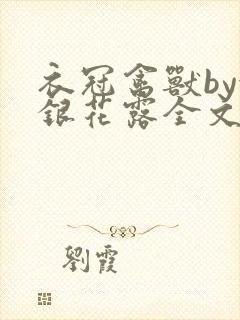 衣冠禽獸by
銀花露全文
劉霞